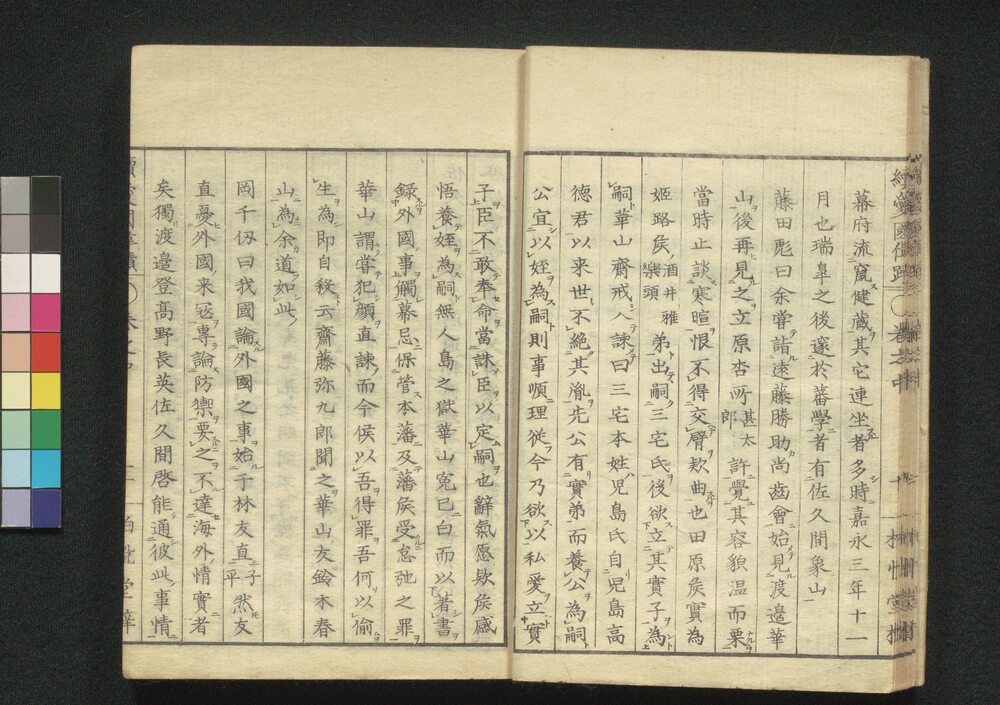 幕府流竄健蔵其它連坐者多時嘉永三年十一
月也瑞皐之後邃於蕃學者有佐久間象山
藤田彪曰余嘗詣遠藤勝助尚齒會始見渡邉華
山後再見之立原杏所甚太郎許覺其容貌温而栗
當時止談寒暄恨不得交臂欵曲也田原矦實為
姫路矦酒井雅樂頭弟出嗣三宅氏後欲立其實子為
嗣華山齋戒入諫曰三宅本姓児島氏自児島高
德君以来世不絶其胤先公有實弟而養公為嗣
公宜以姪為嗣則事順理從今乃欲以私愛立實
子臣不敢奉命當誅臣以定嗣也辭氣愿欵矦感
悟養姪為嗣無人島之獄華山寃已白而以著書
録外國事觸幕忌保管本藩及藩矦受怠弛之罪
華山謂嘗犯顔直諫而今侯以吾得罪吾何以偷
生為即自殺云齋藤弥九郎聞之華山友鈴木春
山為余道如此
岡千仭曰我國論外國之事始于林友直子平然友
直憂外國来寇専論防禦要之不達海外情實者
矣獨渡邉登髙野長英佐久間啓能通彼此事情